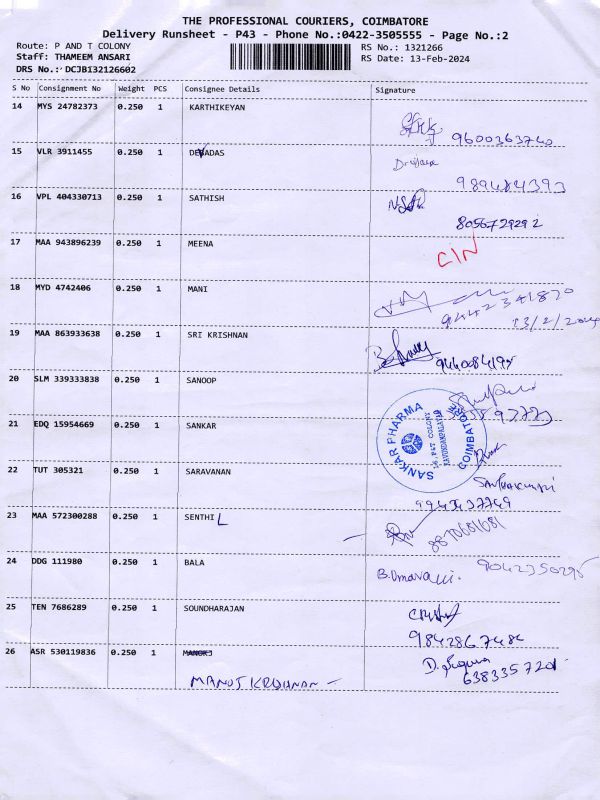 THE PROFESSIONAL COURIERS, COIMBATORE
Delivery Runsheet - P43 - Phone No.:0422-3505555 - Page No.:2
Route: P AND T COLONY
RS No.: 1321266
Staff: THAMEEM ANSARI
RS Date: 13-Feb-2024
DRS No.: DCJBI32126602
S No Consignment No Weight PCS Consignee Details Signature
14 MYS 24782373 0.250 1 KARTHIKEYAN
9600363740
15 VLR 3911455 0.250 1 DEVADAS
989484393
16 VPL 404330713 0.250 1 SATHISH
8056729292
17 MAA 943896239 0.250 1 MEENA
C/N
18 MYD 4742406 0.250 1 MANI
9442341870
13/2/2024
19 MAA 863933638 0.250 1 SRI KRISHNAN
20 SLM 339333838 0.250 1 SANOOP
21 EDQ 15954669 0.250 1 SANKAR
SANKAR PHARMA
14, P&T COLONY
KAVUNDAMPALAYAM
COIMBATORE
22 TUT 305321 0.250 1 SARAVANAN
9943437749
23 MAA 572300288 0.250 1 SENTHIL
8870681681
24 DDG 111980 0.250 1 BALA
B. Umavathi.
9042350295
25 TEN 7686289 0.250 1 SOUNDHARAJAN
9842867484
26 ASR 530119836 0.250 1 MANOKJ
638335720
MANOJ KRISHNAN